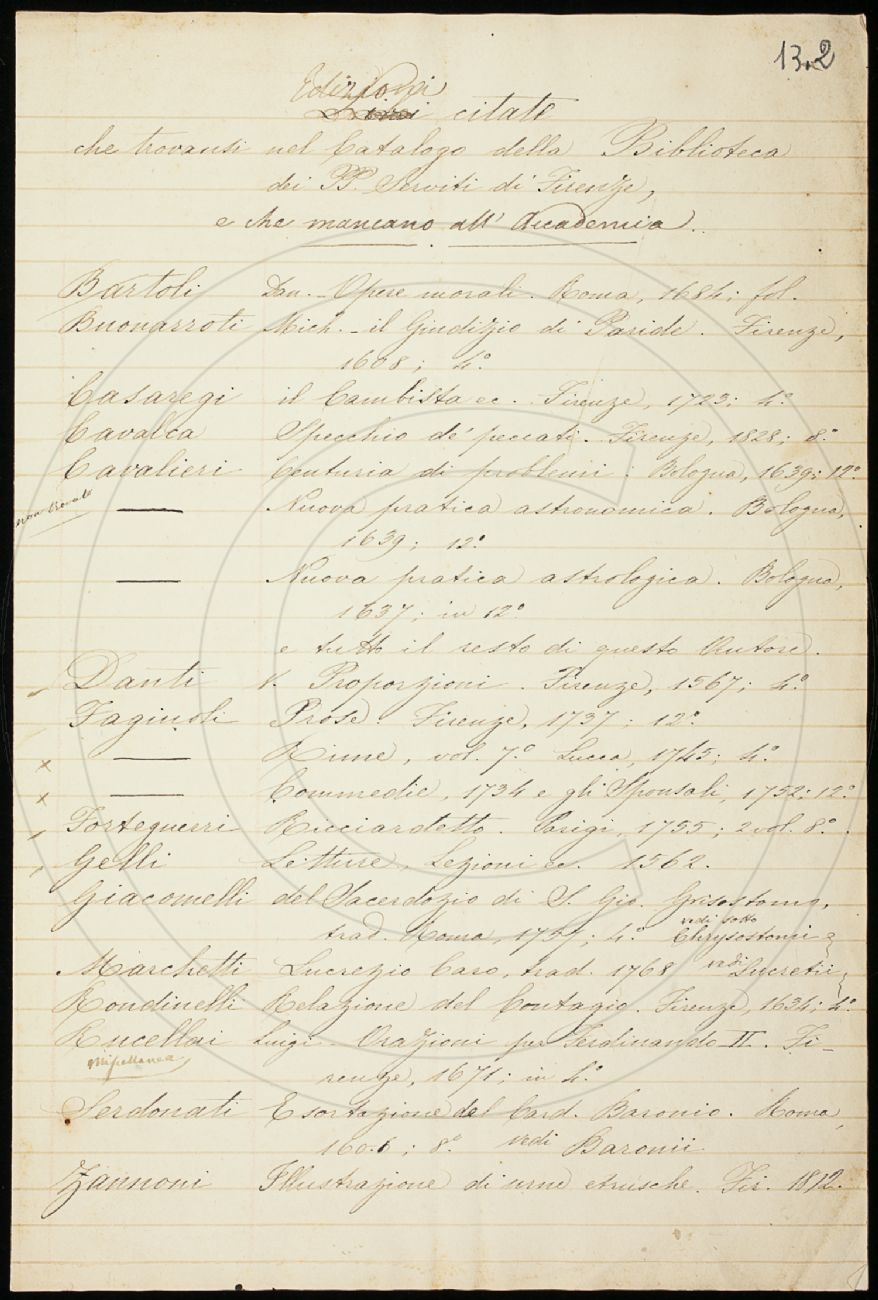 13.2
Edizioni
citate
che trovansi nel Catalogo della Biblioteca
dei PP. Serviti di Firenze,
e che mancano all' Accademia.
Bartoli Dan. - Opere morali. Roma, 1684; fol.
Buonarroti Mich. - il Giudizio di Paride. Firenze,
1608; 4.º
Casaregi il Cambista ec. Firenze, 1723; 4.º
Cavalca Specchio de' peccati. Firenze, 1828; 8.º
Cavalieri Centuria di problemi. Bologna, 1639; 12.º
non trovato — Nuova pratica astronomica. Bologna,
1639; 12.º
— Nuova pratica astrologica. Bologna,
1637; in 12.º
e tutto il resto di questo Autore.
Danti V. Proporzioni. Firenze, 1567; 4.º
Fagiuoli Prose. Firenze, 1737; 12.º
x — Rime, vol. 7.º Lucca, 1745; 4.º
x — Commedie, 1734 e gli Sponsali, 1752; 12.º
Forteguerri Ricciardetto. Parigi, 1755; 2 vol. 8.º
Gelli Letture, Lezioni ec. 1562.
Giacomelli del Sacerdozio di S. Gio. Grisostomo,
trad. Roma, 1757; 4.º vedi sotto Chrysostomi
Marchetti Lucrezio Caro, trad. 1768 vedi Lucretii
Rondinelli Relazione del Contagio. Firenze, 1634; 4.º
Rucellai Luigi - Orazioni per Ferdinando II. Fi-
Miscellanea
renze, 1671; in 4.º
Serdonati Esortazione del Card. Baronio. Roma,
1606; 8.º vedi Baronii
Zannoni Illustrazione di urne etrusche. Fir. 1812.